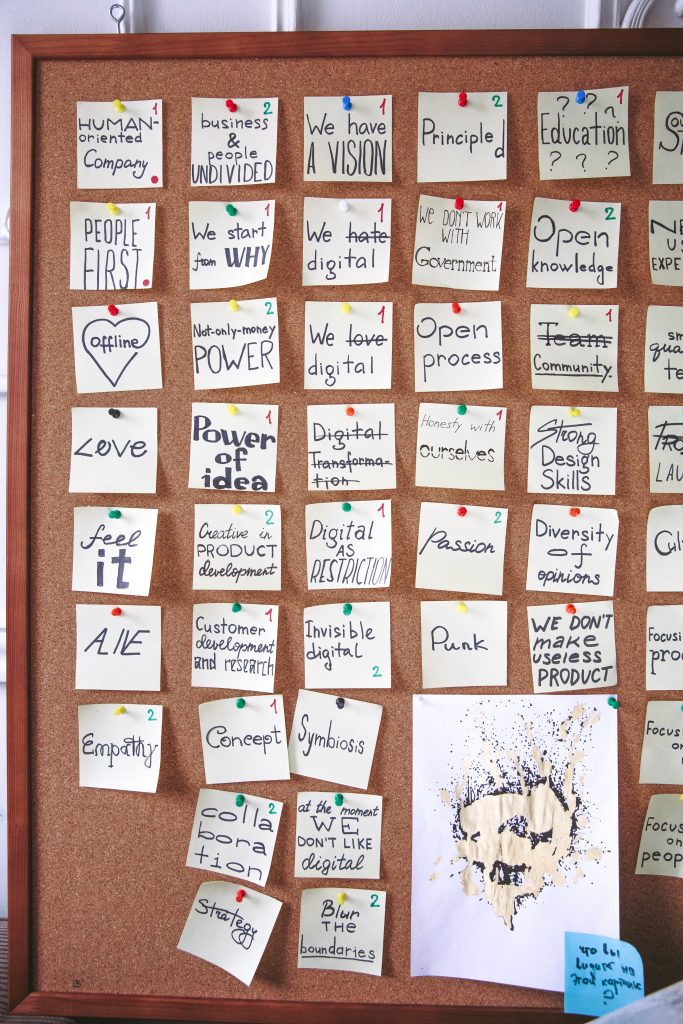 HUMAN-
oriented
Company
1
business
&
people
UNDIVIDED
2
We have
A VISION
1
Principled
2
? ? ?
Education
? ? ?
1
PEOPLE
FIRST
1
We start
from WHY
1
We hate
digital
1
WE DON'T WORK
WITH
Government
1
Open
knowledge
2
offline
Not-only-money
POWER
2
We love
digital
1
Open
process
Team
Community.
1
LOVE
Power
of
idea
1
Digital
Transforma-
tion
Honesty with
ourselves
1
Strong
Design
Skills
feel
it
Creative in
PRODUCT
development
2
Digital
AS
RESTRICTION
1
Passion
2
Diversity
of
opinions
Customer
development
and research
1
Invisible
digital
2
Punk
WE DON'T
make
useless
PRODUCT
Empathy
2
Concept
1
Symbiosis
on
colla
bora
tion
2
at the moment
WE
DON'T LIKE
digital
on
people
Strategy
Blur
THE
boundaries
2
что вы
видите на
этой картинке